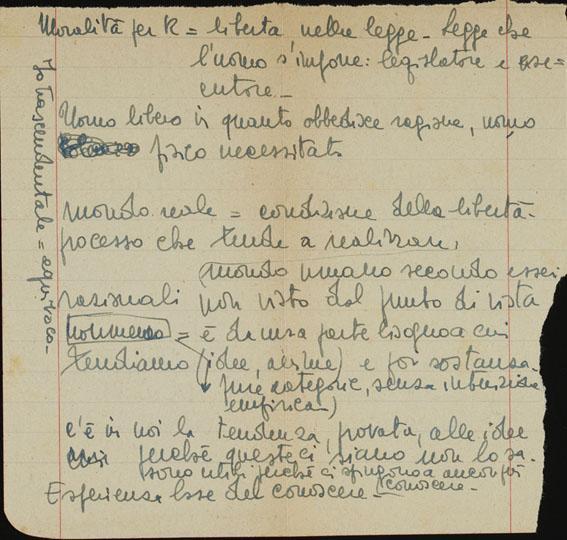 Moralità per K = libertà nella legge - Legge che
l'uomo s'impone: legislatore e ese=
cutore -
Uomo libero in quanto obbedisce ragione, uomo
fisico necessitato
mondo reale = condizione della libertà -
processo che tende a realizzare,
(mondo umano secondo esseri
razionali non visto dal punto di vista
noumeno = è da una parte bisogno a cui
tendiamo (idee, anima) e poi sostanza
pure categorie, senza intuizione
empirica -)
c'è in noi la tendenza, provata, alle idee
perché queste ci siano non lo sa.
(sono utili perché ci spingono a ancor più
conoscere -
Esperienza base del conoscere -
Io trascendentale = equivoco -